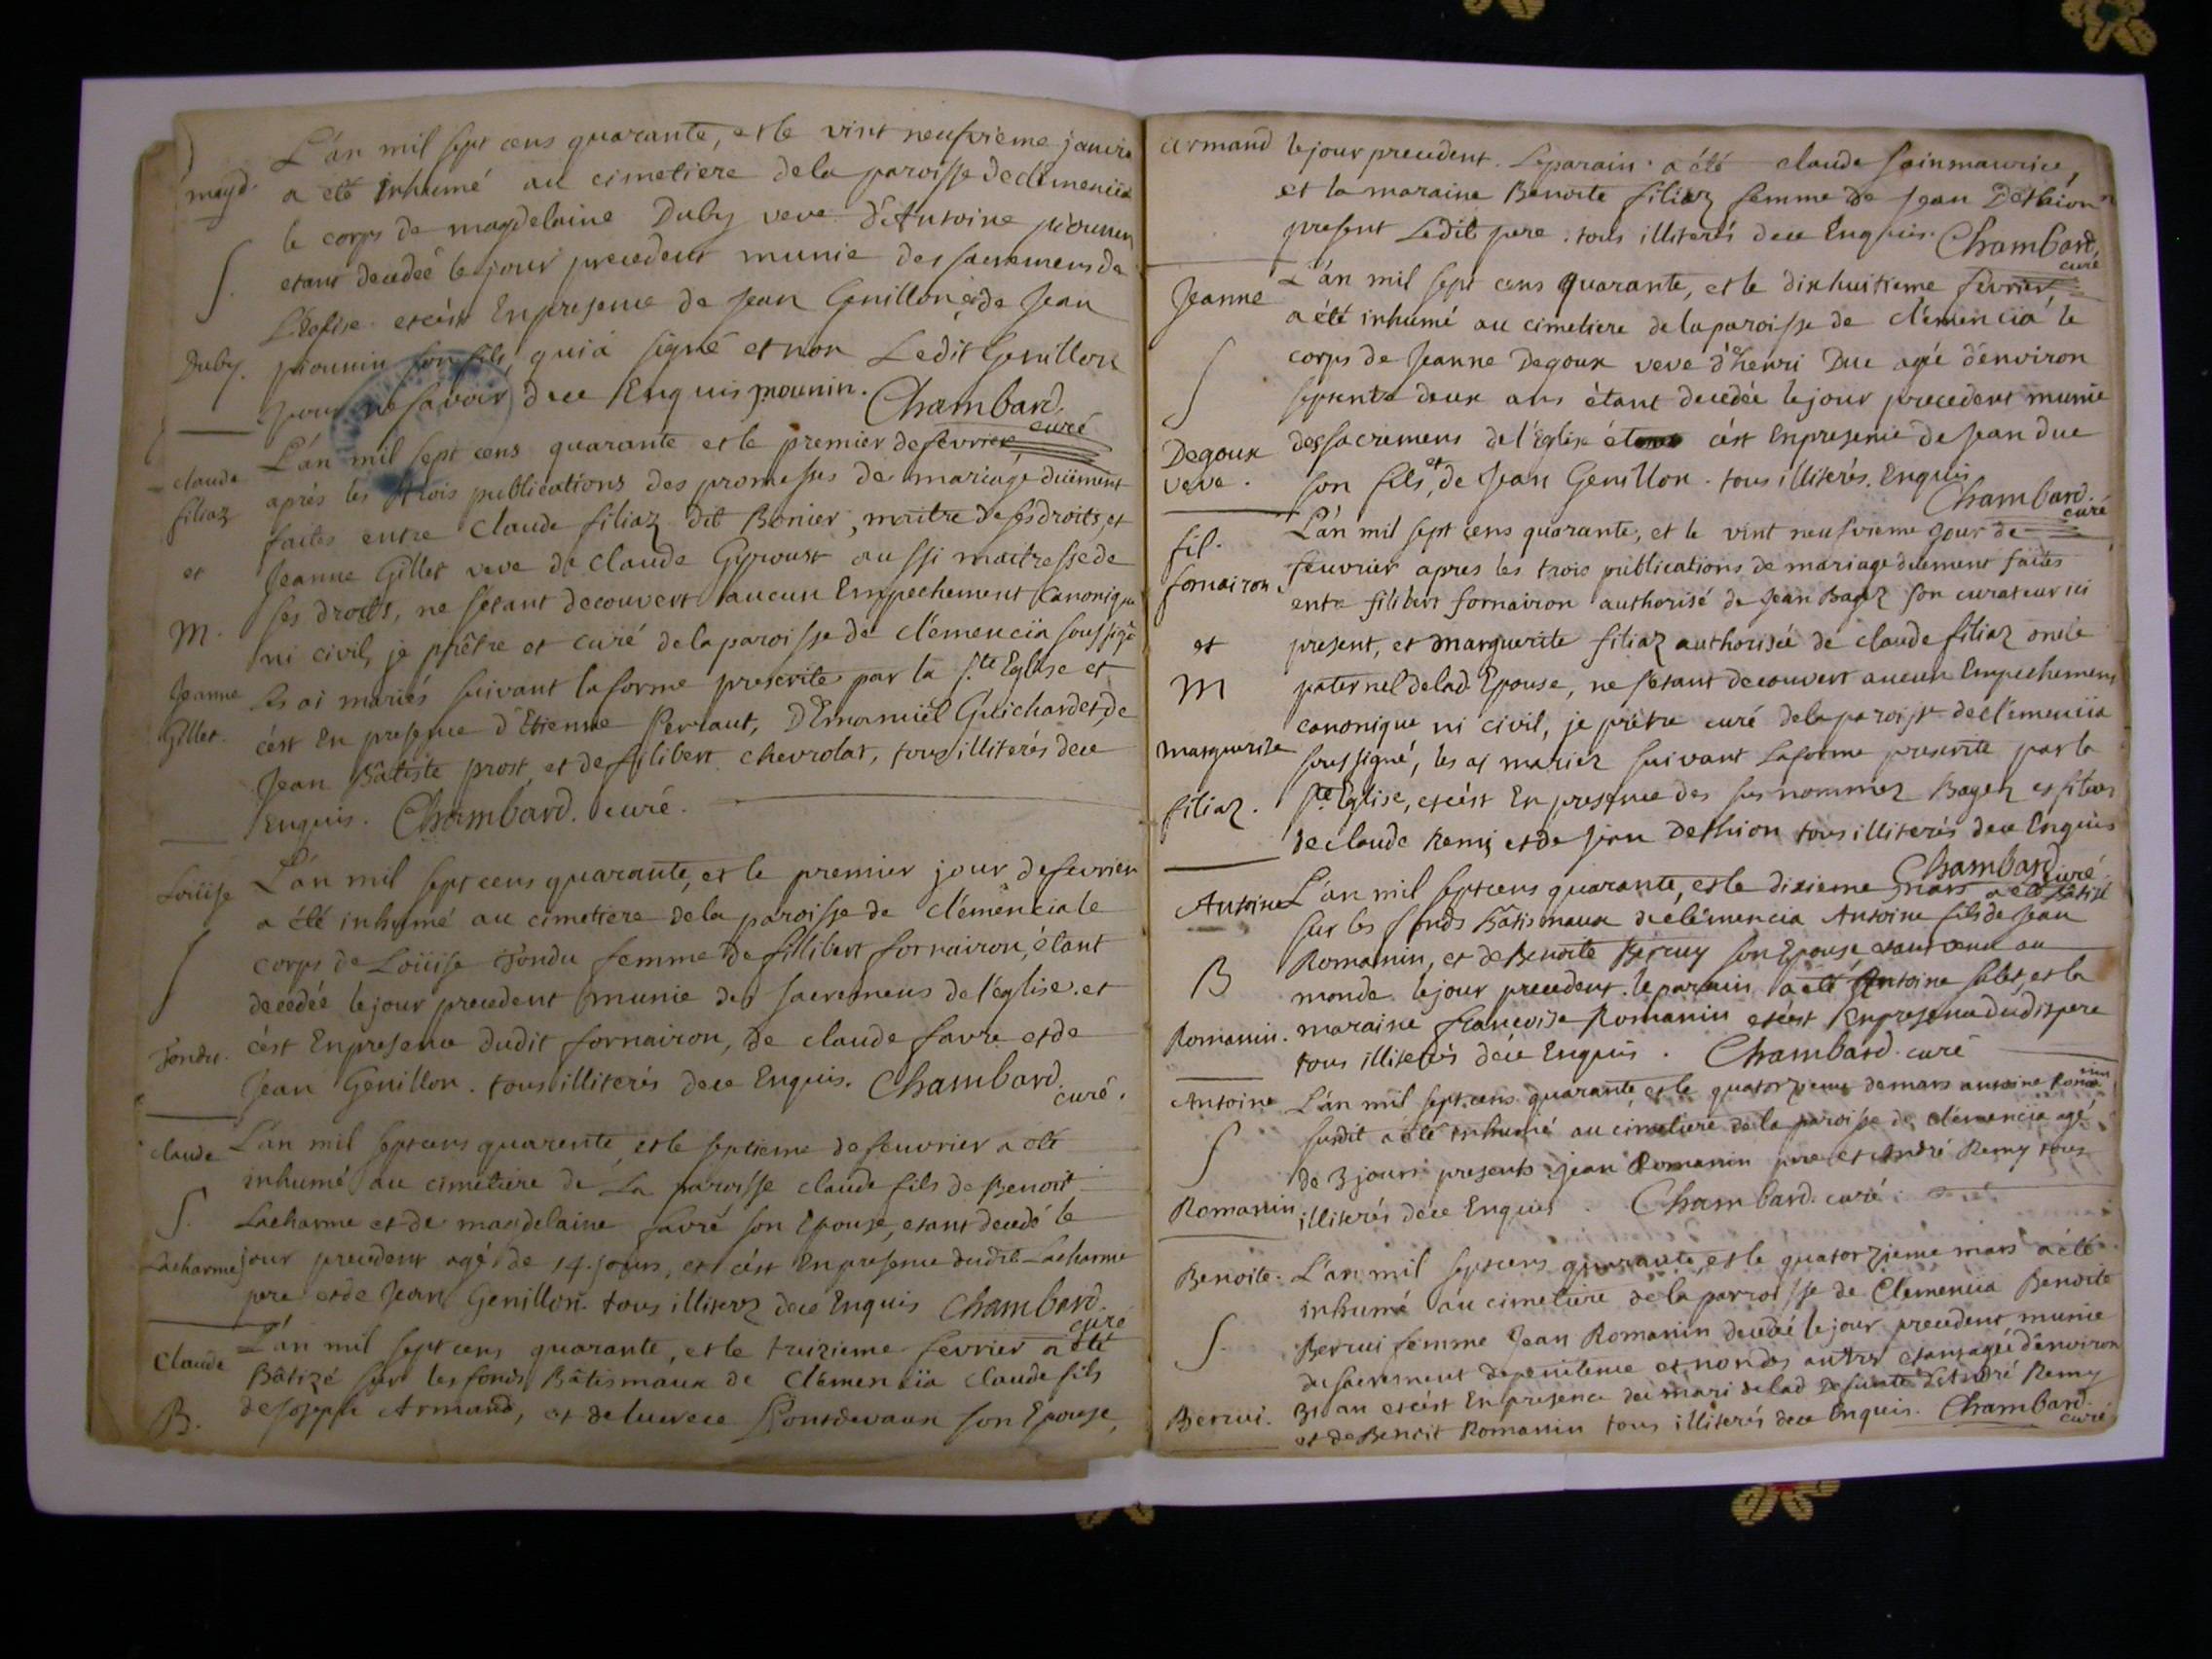 L'án mil sept cens quarante, et le vint neufvieme janvie
magd. a été inhumé au cimetiere de la paroisse de clémenciia
le corps de magdelaine Duby veve d'Antoine piounin
S. etant decedeé le jour precedent munie des sacremens de
L'Eglise et cést En presence de Jean Genillon et de Jean
Duby. piounin son fils, qui á signé et non Ledit Genillon
pour ne savoir de ce Enquis piounin. Chambard. curé
claude L'án mil sept cens quarante et le premier de fevrier
filiaz aprés les trois publications des promesses de mariage düement
faites entre Claude filiaz dit Bonier, maitre de ses droits, et
et Jeanne Gillet veve de Claude Gyroust aussi maitresse de
ses droits, ne setant decouvert aucun Empechement Canonique
M. ni civil, je prêtre et curé de la paroisse de clémenciïa soussigé
Jeanne les ai mariés suivant la forme prescrite par la Ste Eglise et
Gillet. cést En presence d'Etienne Perraut, D'Emanuïel Guichardet, de
Jean Bâtiste prost, et de filibert chevrolat, tous illiterés de ce
Enquis. Chambard. curé.
Loüise L'án mil sept cens quarante, et le premier jour de fevrier
a été inhumé au cimetiere de la paroisse de clémencia le
S corps de Loüise Tondu femme de fillibert fornairon, étant
decedée le jour precedent munie des sacremens de l'église. et
Tondu. cést En presence dudit fornairon, de claude favre et de
Jean Genillon. tous illiterés de ce Enquis. Chambard. curé.
claude L'án mil sept cens quarente, et le septieme de feuvrier a été
inhumé au cimetiere de La paroisse claude fils de Benoit
S. Lacharme et de magdelaine favre son Epouse, etant decedé le
Lacharme jour precedent agé de 14. jours, et cést En presence dudit Lacharme
pere et de Jean Genillon. tous illiterez de ce Enquis Chambard. curé
Claude L'án mil sept cens quarante, et le treizieme fevrier a été
Bâtizé sur les fonds Bâtismaux de Clémenciïa Claude fils
B. de Joseph Armand, et de lucrece Pontdevaux son Epouse,
armand le jour precedent. Le parain a été claude sainmaurice,
et la maraine Benoite filiaz femme de Jean Dethion
present Ledit pere. tous illiterés de ce Enquis. Chambard. curé
Jeanne L'án mil sept cens quarante, et le dixhuitieme fevrier
a été inhumé au cimetiere de la paroisse de clémencia le
S corps de Jeanne Degoux veve d'henri Duc agée d'environ
septente deux ans étant decedée le jour precedent munie
Degoux des sacremens de l'Eglise et cést En presence de Jean duc
veve. son fils, et de Jean Genillon. tous illiterés. Enquis Chambard. curé
fil. L'án mil sept cens quarante, et le vint neufvieme jour de
fornairon. feuvrier apres les trois publications de mariage duement faites
entre filibert fornairon authorisé de Jean Bagez son curateur ici
et present, et Marguerite filiaz authorisée de claude filiaz oncle
M paternel de lad. Epouse, ne setant decouvert aucun Empechement
canonique ni civil, je prêtre curé de la paroisse de clémenciia
marguerite soussigné, les ai mariez suivant la forme prescrite par la
filiaz. Ste Eglise, et cést En presence des susnommez Bagez et filiaz
de claude Remi et de Jean Dethion tous illiterés de ce Enquis
Chambard. curé.
Antoine L'an mil sept cens quarante, et le dixieme mars a été Batisé
sur les fonds Bâtismaux de clémencia Antoine fils de Jean
B Romanin, et de Benoite Berruy son Epouse etant venu au
monde le jour precedent. le parrain a été Antoine salet, et la
Romanin. maraine francoise Romanin et cést En presence dudit pere
tous illiterés de ce Enquis. Chambard. curé
Antoine L'án mil sept cens quarante, et le quatorzieme de mars antoine Romanin
S susdit a été inhumé au cimetiere de la paroisse de clémenciia agé
de 3 jours presents jean Romanin pere et André Remy tous
Romanin illiterés de ce Enquis. Chambard. curé.
Benoite. L'an mil sept cens quarante, et le quatorzieme mars a été
inhumé au cimetiere de la parroisse de Clemenciia Benoite
S. Berrui femme Jean Romanin decedée le jour precedent munie
du sacrement de penitence et non des autres etant agée d'environ
31 an et cést En presence du mari de lad. Defunte D'André Remy
Berrui. et de Benoit Romanin tous illiterés de ce Enquis. Chambard. curé